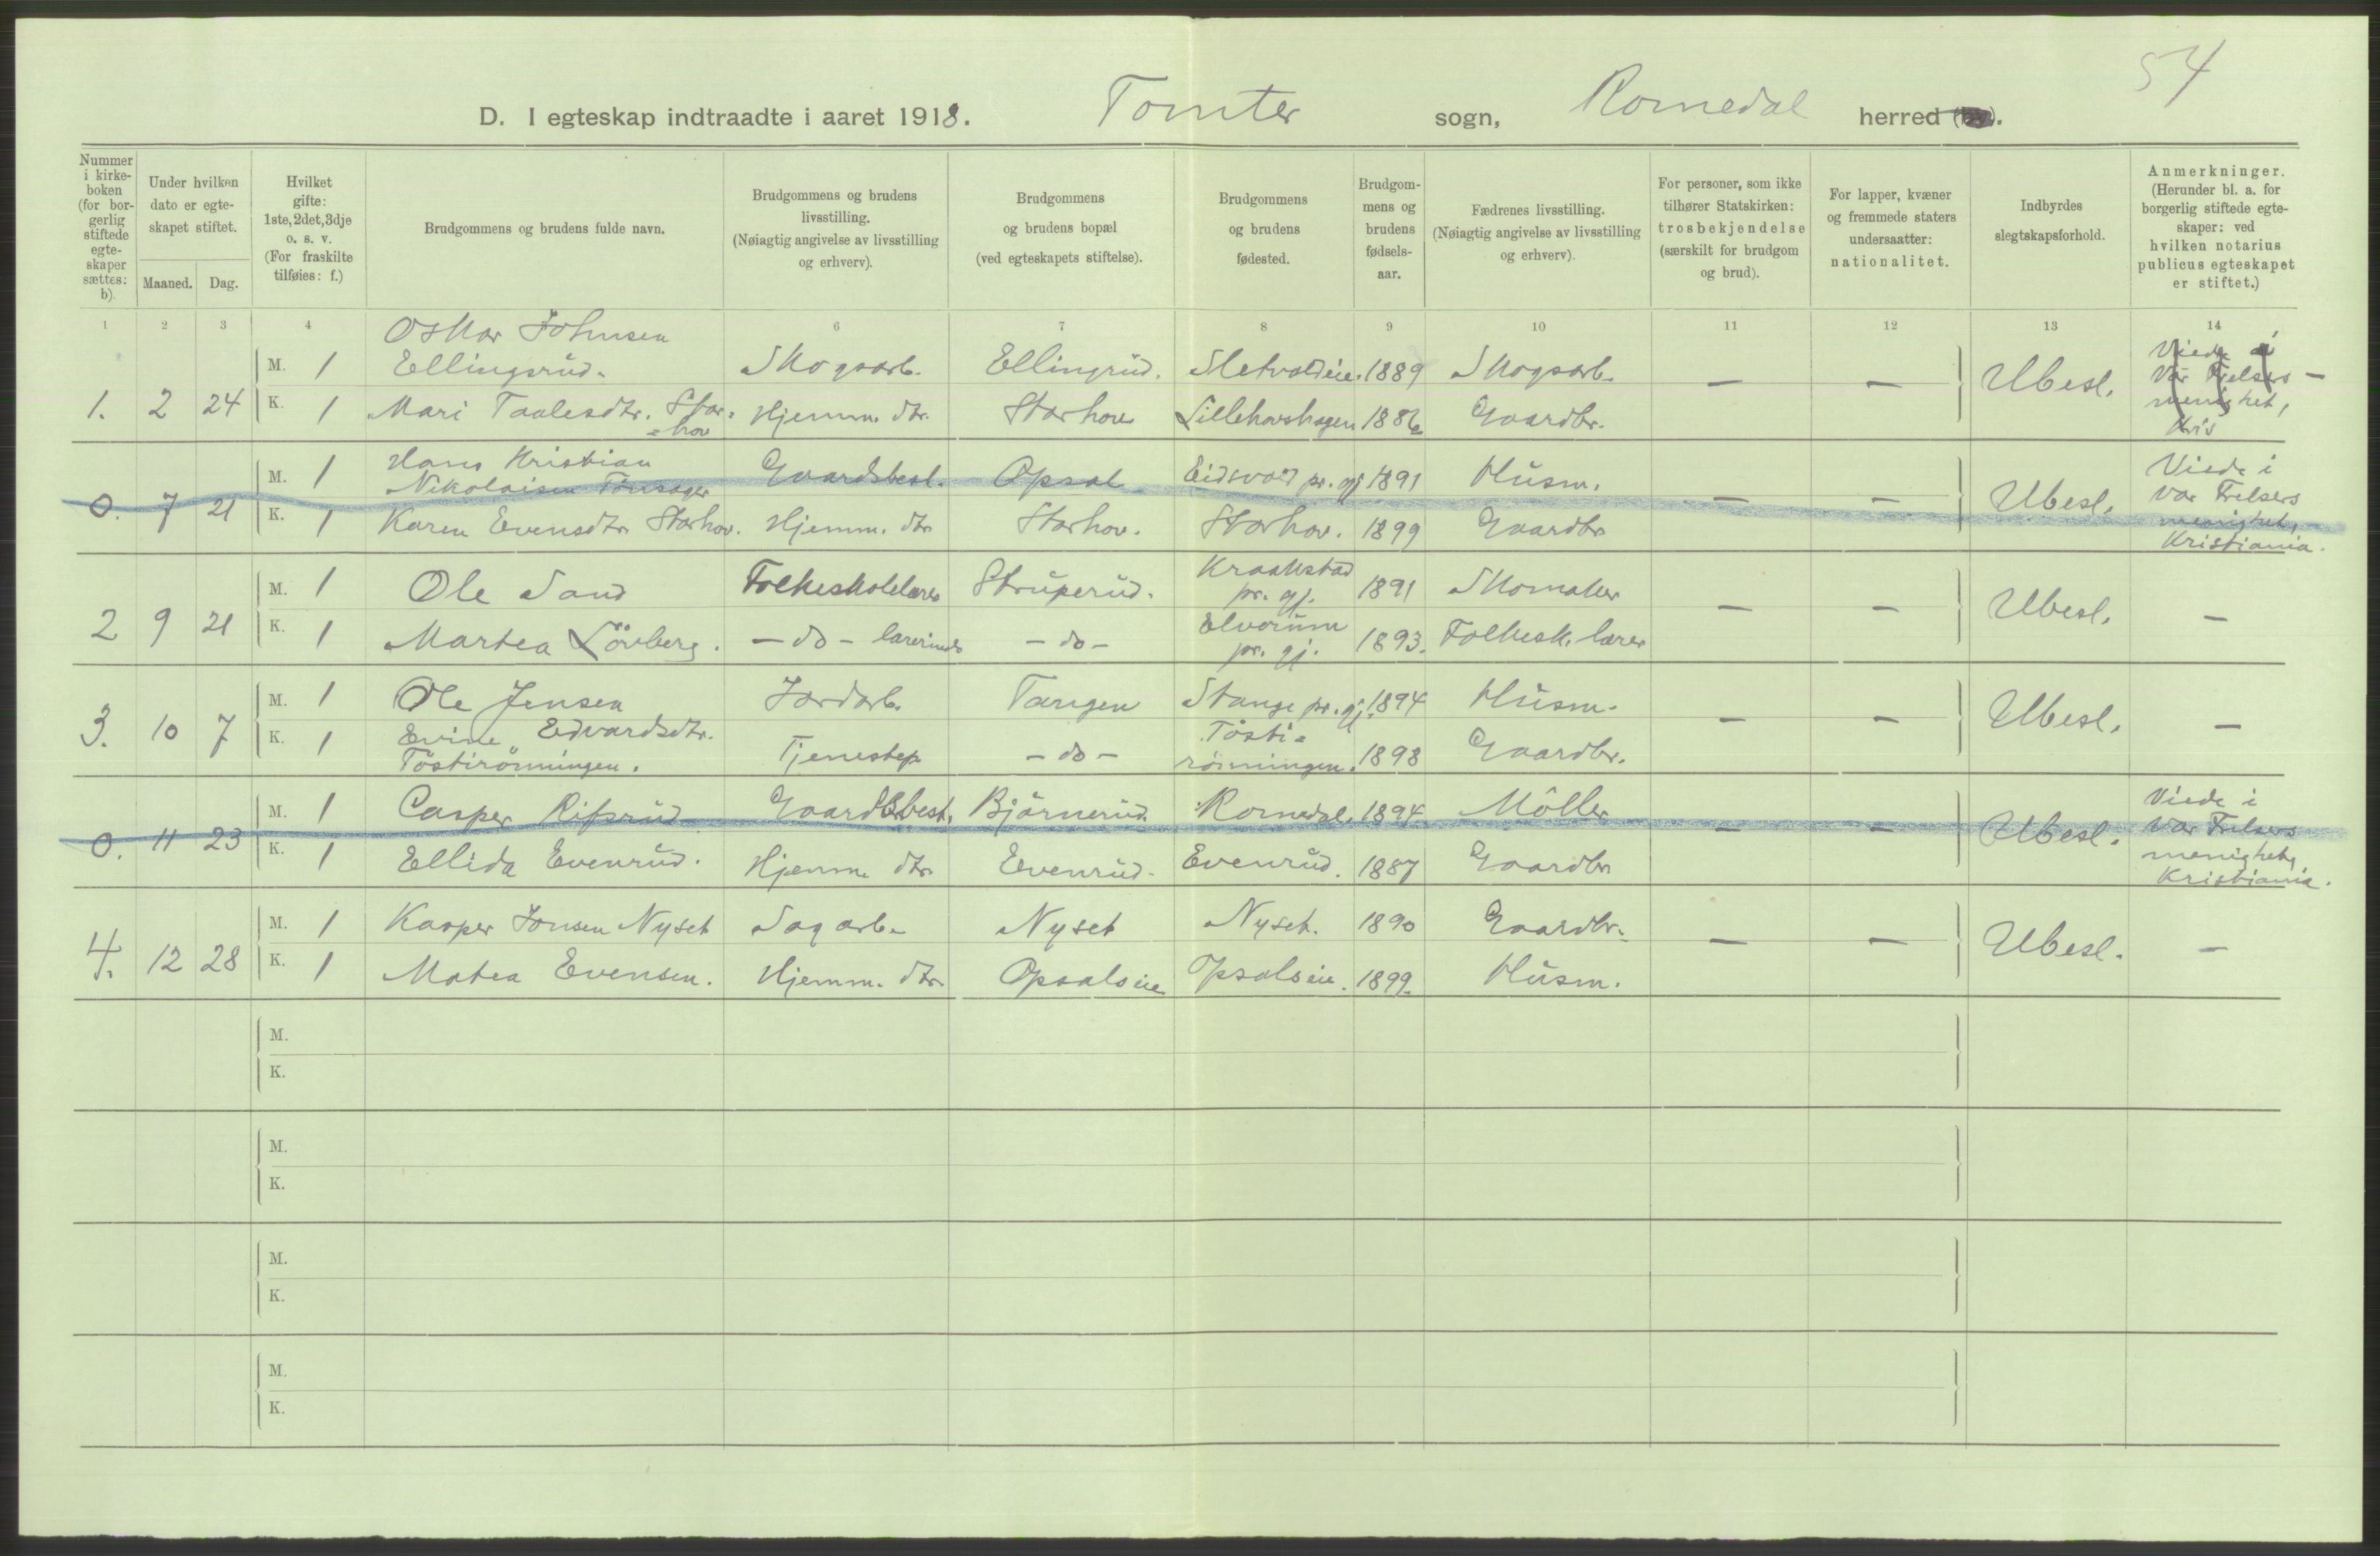 54
D. I egteskap indtraadte i aaret 1918. Tomter sogn, Romedal herred (by).
Nummer i kirkeboken (for borgerlig stiftede egteskaper sættes: b).
Under hvilken dato er egteskapet stiftet.
Maaned. Dag.
Hvilket gifte: 1ste, 2det, 3dje o. s. v. (For fraskilte tilføies: f.)
Brudgommens og brudens fulde navn.
Brudgommens og brudens livsstilling. (Nøiagtig angivelse av livsstilling og erhverv).
Brudgommens og brudens bopæl (ved egteskapets stiftelse).
Brudgommens og brudens fødested.
Brudgommens og brudens fødselsaar.
Fædrenes livsstilling. (Nøiagtig angivelse av livsstilling og erhverv).
For personer, som ikke tilhører Statskirken: trosbekjendelse (særskilt for brudgom og brud).
For lapper, kvæner og fremmede staters undersaatter: nationalitet.
Indbyrdes slegtskapsforhold.
Anmerkninger. (Herunder bl. a. for borgerlig stiftede egteskaper: ved hvilken notarius publicus egteskapet er stiftet.)
1 2 3 4 6 7 8 9 10 11 12 13 14
1. 2 24
M. 1 Oskar Johnsen Ellingsrud. Skogsarb. Ellingrud. Sletvoldeie. 1889 Skogsarb. — — Ubesl. Viede i Vår Frelsers menighet, Kr.a —
K. 1 Mari Taalesdtr. Stor=hov Hjemm. dtr. Storhov Lillehovshagen 1886 Gaardbr.
0. 7 21
M. 1 Hans Kristian Nikolaisen Tönsager Gaardsbest. Opsal Eidsvold pr. gj. 1891 Husm. — — Ubesl. Viede i Vor Frelsers menighet, Kristiania.
K. 1 Karen Evensdtr. Storhov. Hjemm. dtr. Storhov. Storhov. 1899 Gaardbr
2 9 21
M. 1 Ole Sand Folkeskolelærer Struperud. Kraakstad pr. gj. 1891 Skomaker — — Ubesl. —
K. 1 Martea Lövberg. — do — lærerinde — do — Elverum pr. gj. 1893. Folkesk. lærer
3. 10 7
M. 1 Ole Jensen Jordarb. Tangen Stange pr. gj. 1894 Husm. — — Ubesl. —
K. 1 Evine Edvardsdtr. Töstirönningen. Tjenestep. — do — Tösti=rönningen. 1898 Gaardbr.
0. 11 23
M. 1 Casper Rifsrud Gaardsbest. Björnerud Romedal. 1894 Möller — — Ubesl. Viede i Vor Frelsers menighet, Kristiania.
K. 1 Ellida Evenrud. Hjemm. dtr. Evenrud. Evenrud. 1887 Gaardbr
4. 12 28
M. 1 Kasper Jonsen Nyset Sagarb. Nyset Nyset. 1890 Gaardbr. — — Ubesl. —
K. 1 Matea Evensen. Hjemm. dtr. Opsalseie Opsalseie. 1899. Husm.
M.
K.
M.
K.
M.
K.
M.
K.